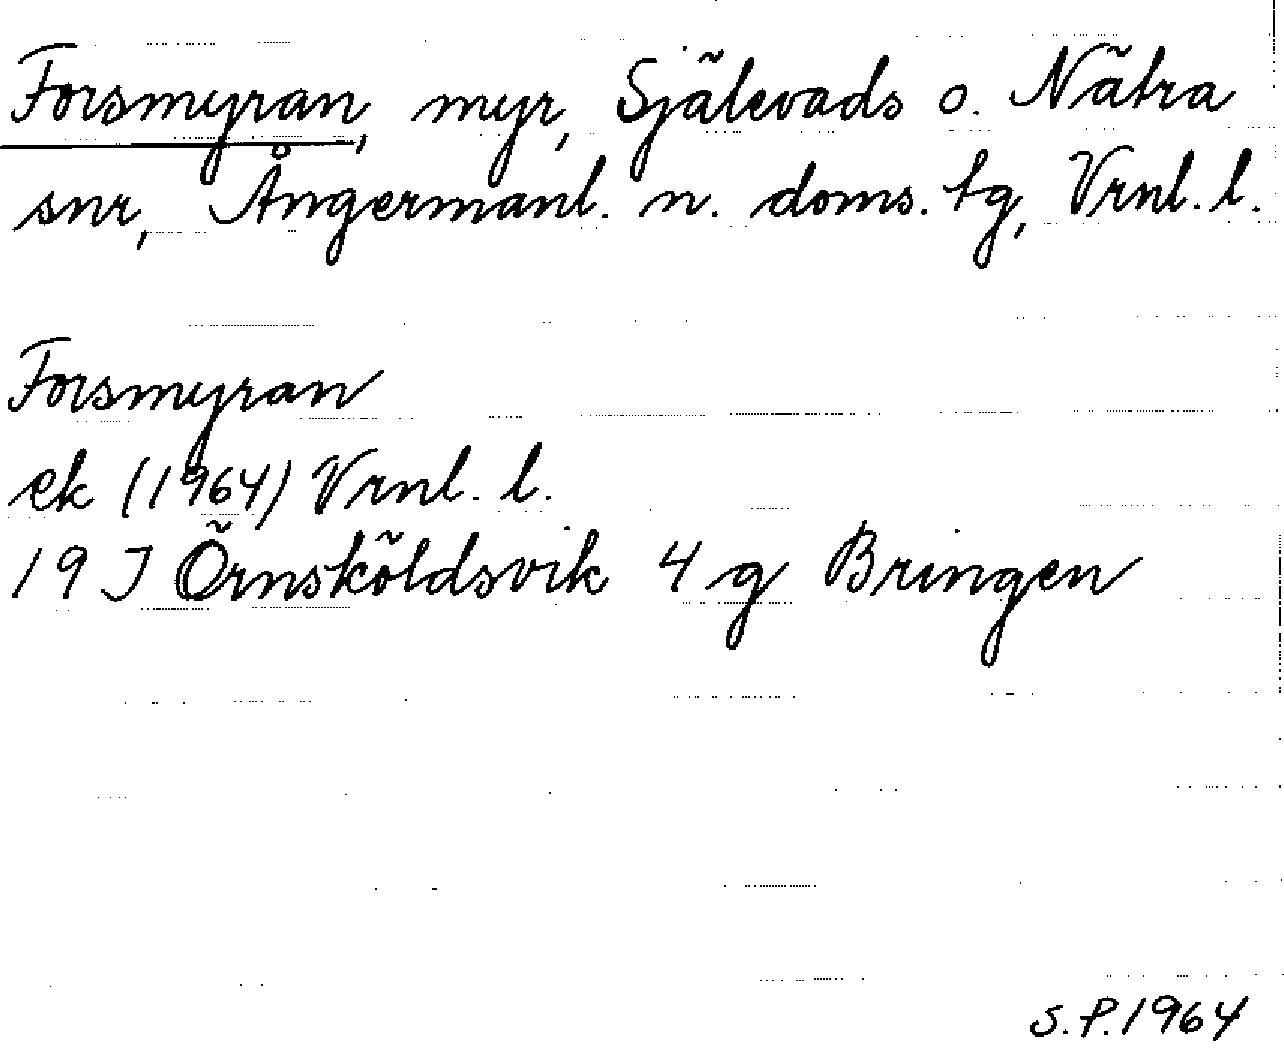 Forsmyran, myr, Själevads o. Nätra
snr, Ångermanl. n. doms. tg, Vrnl. l.
Forsmyran
ek (1964) Vrnl. l.
19 J Örnsköldsvik 4 g Bringen
S.P. 1964